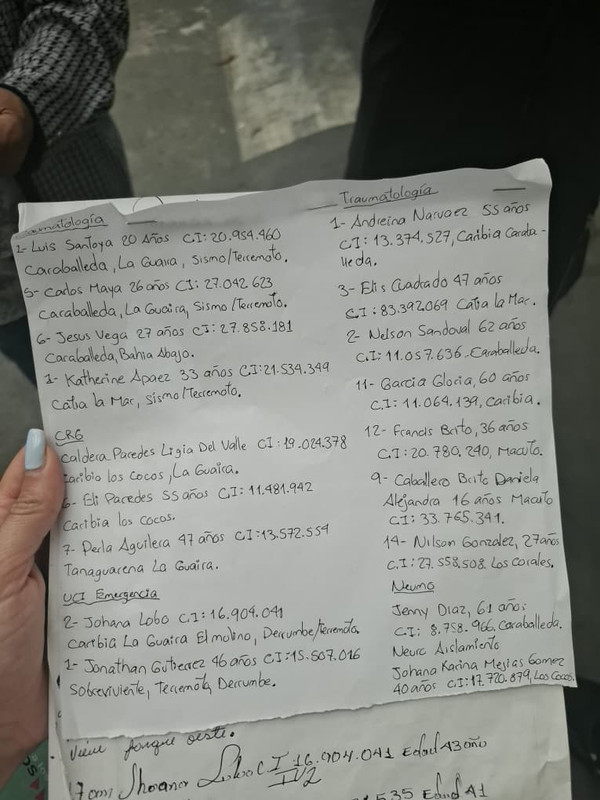 Traumatología
2- Luis Santoya 20 Años C.I: 20.954.460
Caroballeda, La Guaira, Sismo/Terremoto.
5- Carlos Maya 26 años C.I: 27.042.623
Caraballeda, La Guaira, Sismo/Terremoto.
6- Jesus Vega 27 años C.I: 27.858.181
Caraballeda, Bahia Abajo.
1- Katherine Apaez 33 años C.I: 21.534.349
Catia la Mar, Sismo/Terremoto.
Caldera Paredes Ligia Del Valle C.I: 19.024.378
Caribia los Cocos, La Guaira.
6- Eli Paredes 55 años C.I: 11.481.942
Caribia los cocos.
7- Perla Aguilera 47 años C.I: 13.572.554
Tanaguarena La Guaira.
UCI Emergencia
2- Johana Lobo C.I: 16.904.041
Caribia La Guaira El molino, Derrumbe/Terremoto.
1- Jonathan Gutierrez 46 años C.I: 15.507.016
Sobreviviente, Terremoto, Derrumbe.
Traumatología
1- Andreina Narvaez 55 años
C.I: 13.374.527, Caribia Caraba-
lleda.
3- Elis Cuadrado 47 años
C.I: 83.392.069 Catia la Mar.
2- Nelson Sandoval 62 años
C.I: 11.057.636. Caraballeda.
11- Garcia Gloria, 60 años
C.I: 11.064.139, Caribia.
12- Francis Brito, 36 años
C.I: 20.780.240, Macuto.
9- Caballero Brito Daniela
Alejandra 16 años Macuto
C.I: 33.765.341.
14- Nilson Gonzalez, 27 años
C.I: 27.558.508. Los Corales.
Neumo
Jenny Diaz, 61 años:
C.I: 8.758.966, Caraballeda.
Neuro Aislamiento
Johana Karina Mejias Gomez
40 años C.I: 17.720.879, Los Cocos
Viene parque oeste.
Lobo C I 16.904.041 Edad 43 año
535 Edad 41